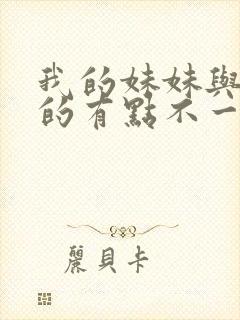 我的妹妹與
的有點不一
麗貝卡